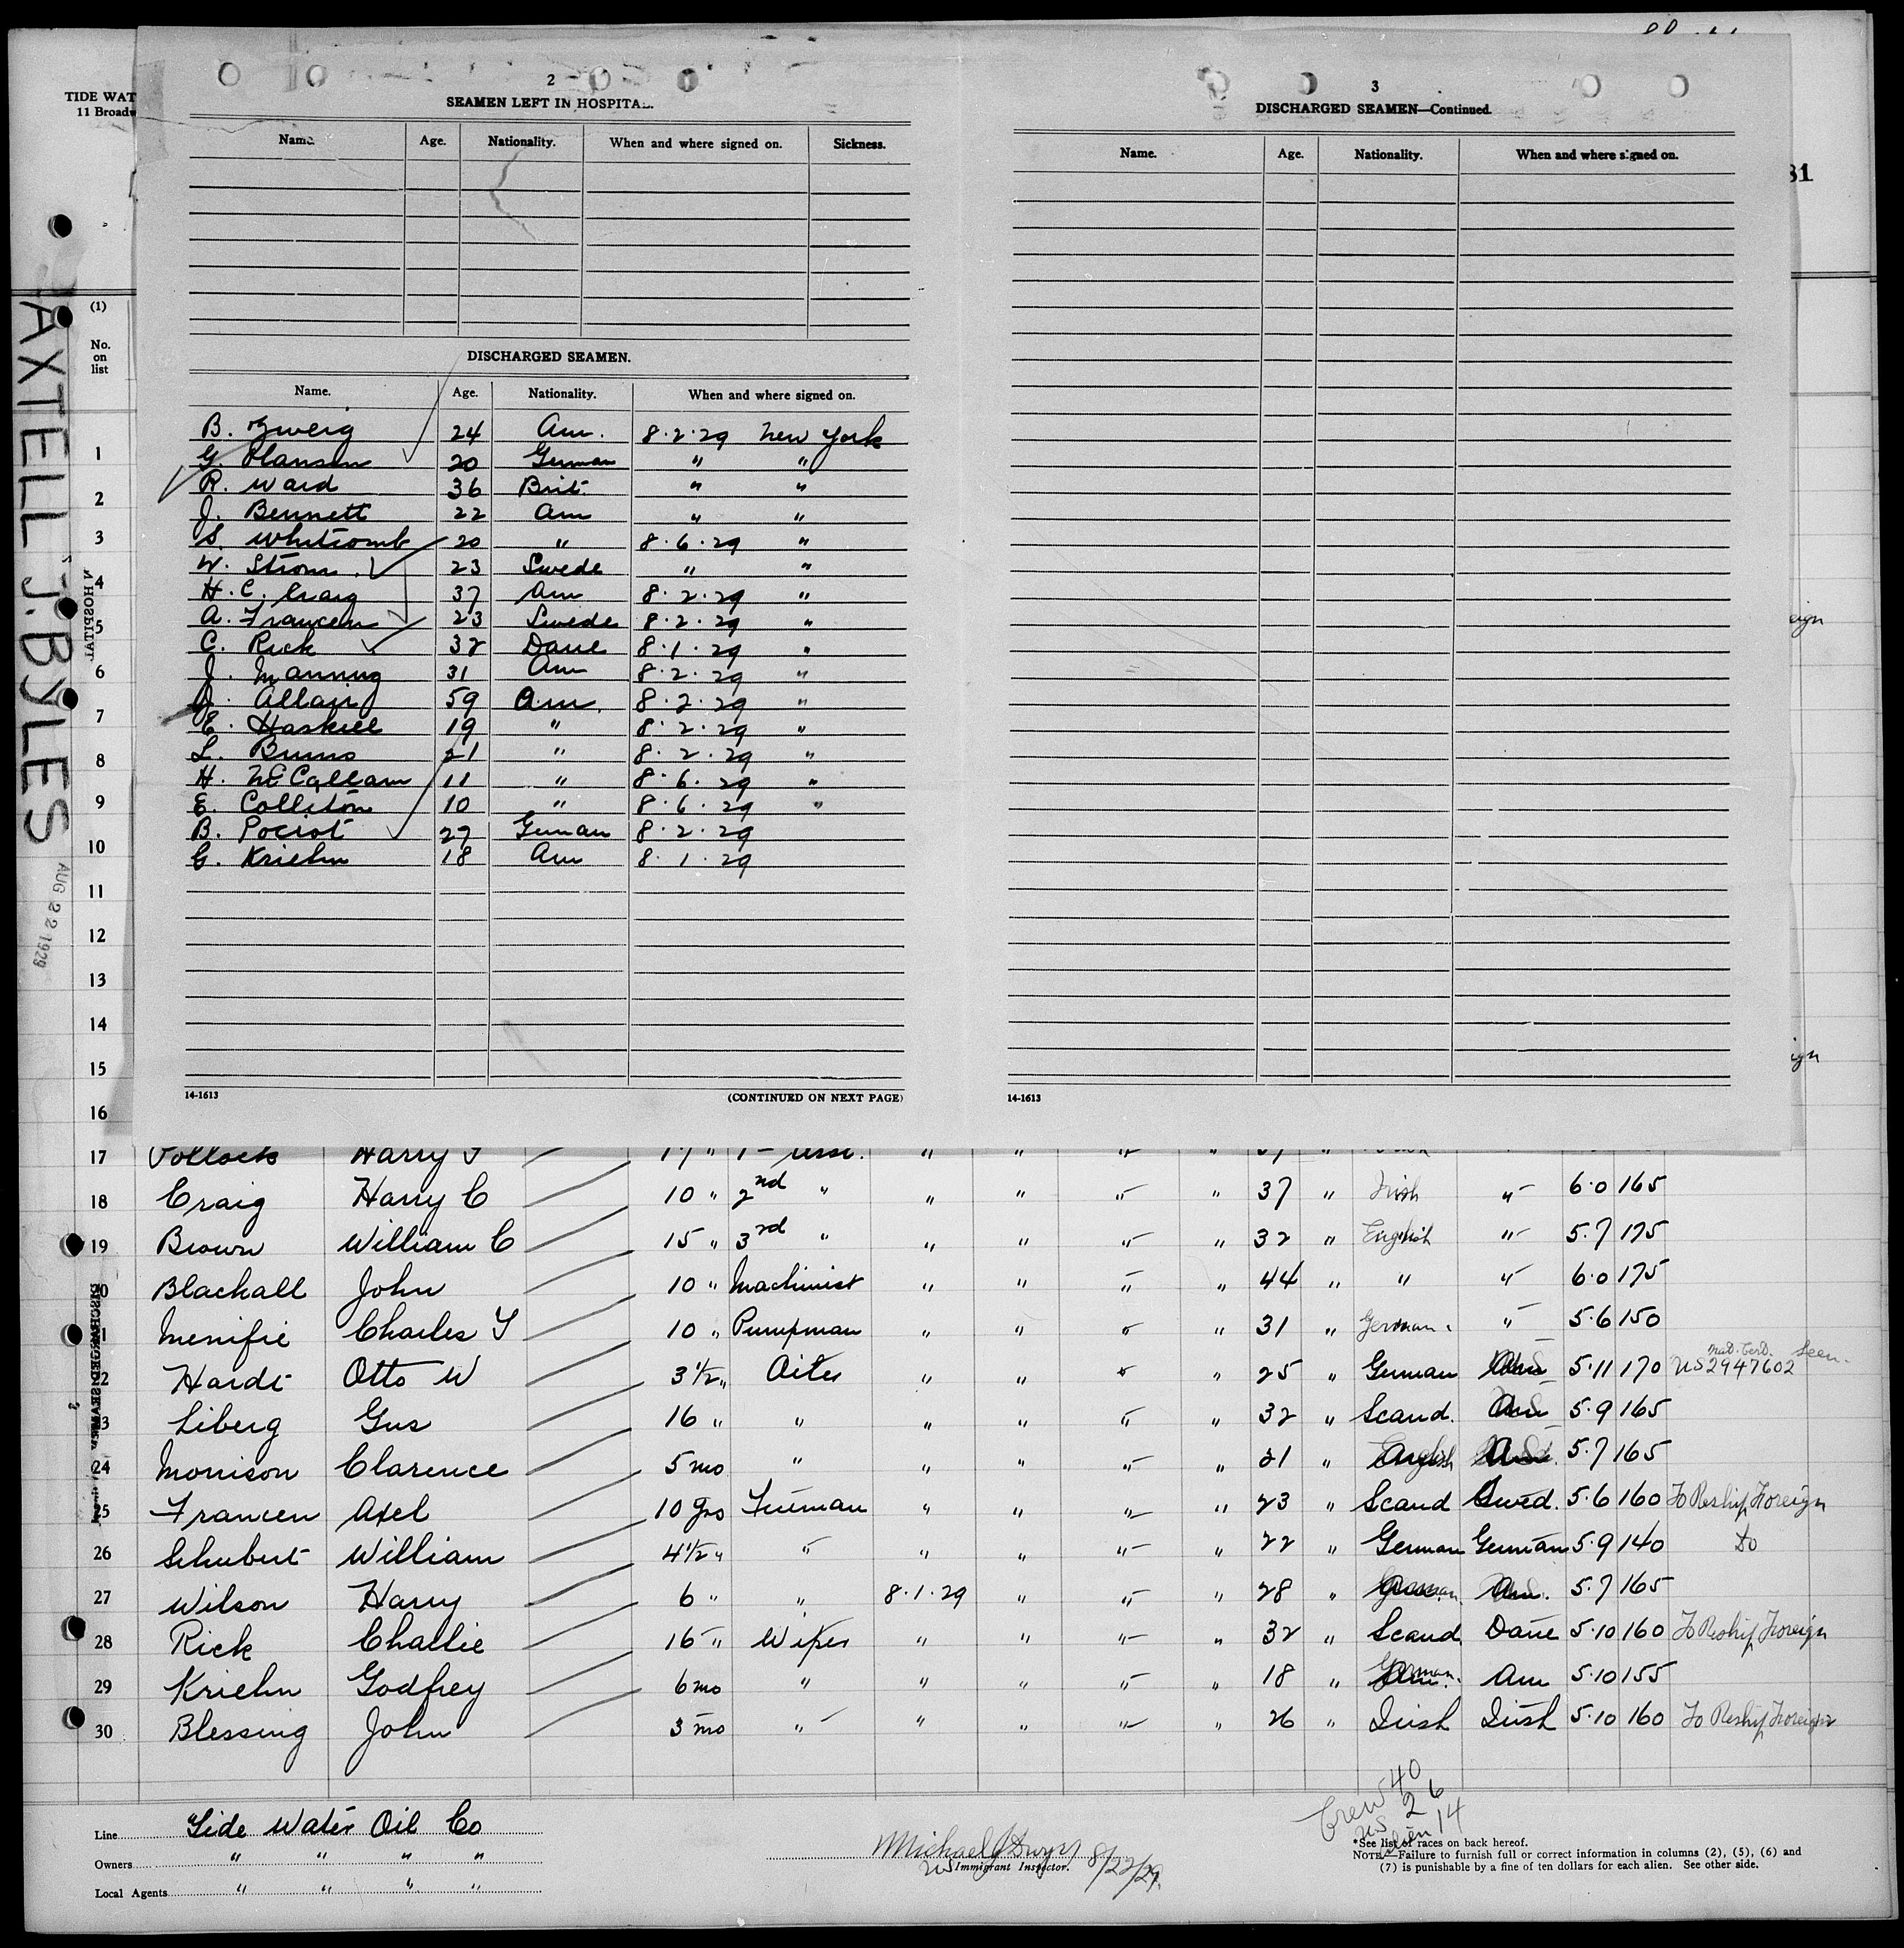 TIDE WAT
11 Broadw
2
SEAMEN LEFT IN HOSPITAL.
Name. Age. Nationality. When and where signed on. Sickness.
DISCHARGED SEAMEN.
Name. Age. Nationality. When and where signed on.
B. Zweig 24 Am. 8·2·29 New York
G. Hansen 20 German " "
R. Ward 36 Brit. " "
J. Bennett 22 Am " "
S. Whitcomb 20 " 8·6·29 "
W. Strom 23 Swede " "
H. C. Craig 37 Am 8·2·29 "
A. Francen 23 Swede 8·2·29 "
C. Rick 32 Dane 8·1·29 "
J. Manning 31 Am 8·2·29 "
J. Allair 59 Am. 8·2·29 "
E. Haskell 19 " 8·2·29 "
L. Bruno 21 " 8·2·29 "
H. McCallam 11 " 8·6·29 "
E. Colliton 10 " 8·6·29 "
B. Pociot 27 German 8·2·29
G. Kriehn 18 Am 8·1·29
14-1613 (CONTINUED ON NEXT PAGE)
3
DISCHARGED SEAMEN—Continued.
Name. Age. Nationality. When and where signed on.
14-1613
81
AXTELL J. BYLES
AUG 22 1929
N HOSPITAL
(1)
No.
on
list
1
2
3
4
5
6
7
8
9
10
11
12
13
14
15
16
17 Pollock Harry
18 Craig Harry C 10 " 2nd " " " " " 37 " Irish " 6·0 165
19 Brown William C 15 " 3rd " " " " " 32 " English " 5·7 175
20 Blackall John 10 " Machinist " " " " 44 " " " 6·0 175
21 Menifie Charles T 10 " Pumpman " " " " 31 " German " 5·6 150
22 Hardt Otto W 3 1/2 " Oiler " " " " 25 " German 5·11 170 Nat. Cert. Seen.
US 2947602
23 Liberg Gus 16 " " " " " " 32 " Scand. 5·9 165
24 Morrison Clarence 5 mo " " " " " 21 " English 5·7 165
25 Francen Axel 10 yrs Fireman " " " " 23 " Scand Swed. 5·6 160 To Reship Foreign
26 Schubert William 4 1/2 " " " " " " 22 " German German 5·9 140 Do
27 Wilson Harry 6 " " 8·1·29 " " " 28 " 5·7 165
28 Rick Charlie 16 " Wiper " " " " 32 " Scand Dane 5·10 160 To Reship Foreign
29 Kriehn Godfrey 6 mo " " " " " 18 " German. Am 5·10 155
30 Blessing John 3 mo " " " " " 26 " Irish Irish 5·10 160 To Reship Foreign
Crew 40
US 26
Alien 14
Line Tide Water Oil Co
Owners " " " "
Local Agents " " " "
Michael J Dwyer 8/22/29.
US Immigrant Inspector.
*See list of races on back hereof.
NOTE.—Failure to furnish full or correct information in columns (2), (5), (6) and
(7) is punishable by a fine of ten dollars for each alien. See other side.